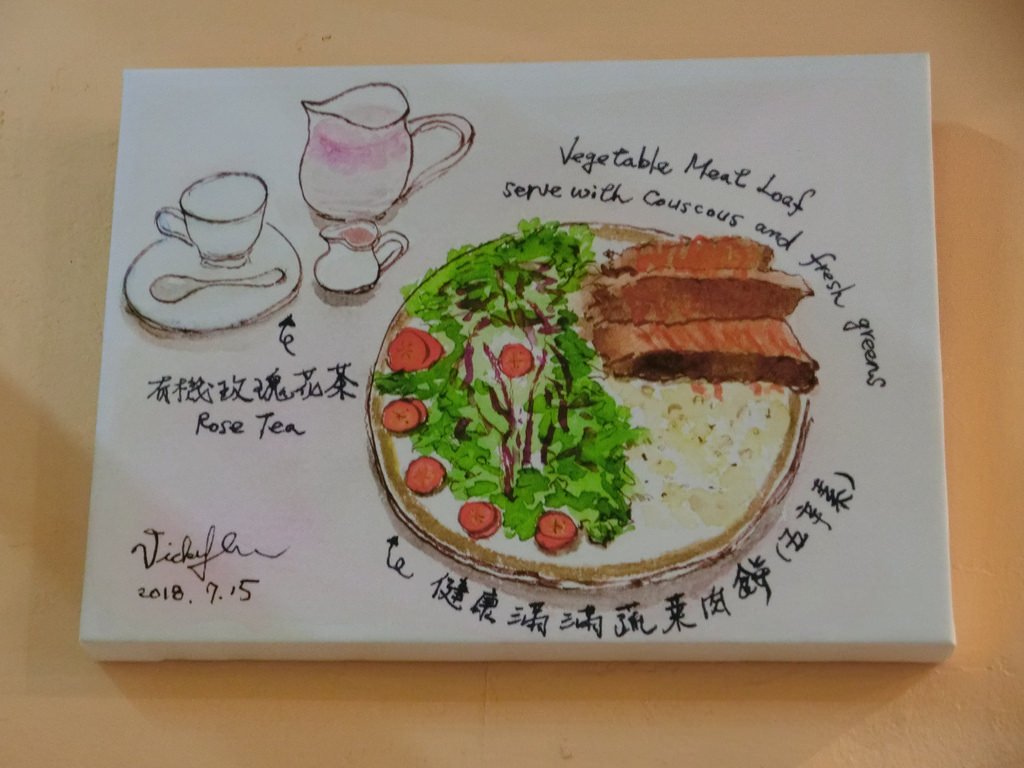 Vegetable Meat Loaf
serve with Couscous and fresh greens
有機玫瑰花茶
Rose Tea
健康滿滿蔬菜肉餅(五辛素)
Vicky
2018.7.15